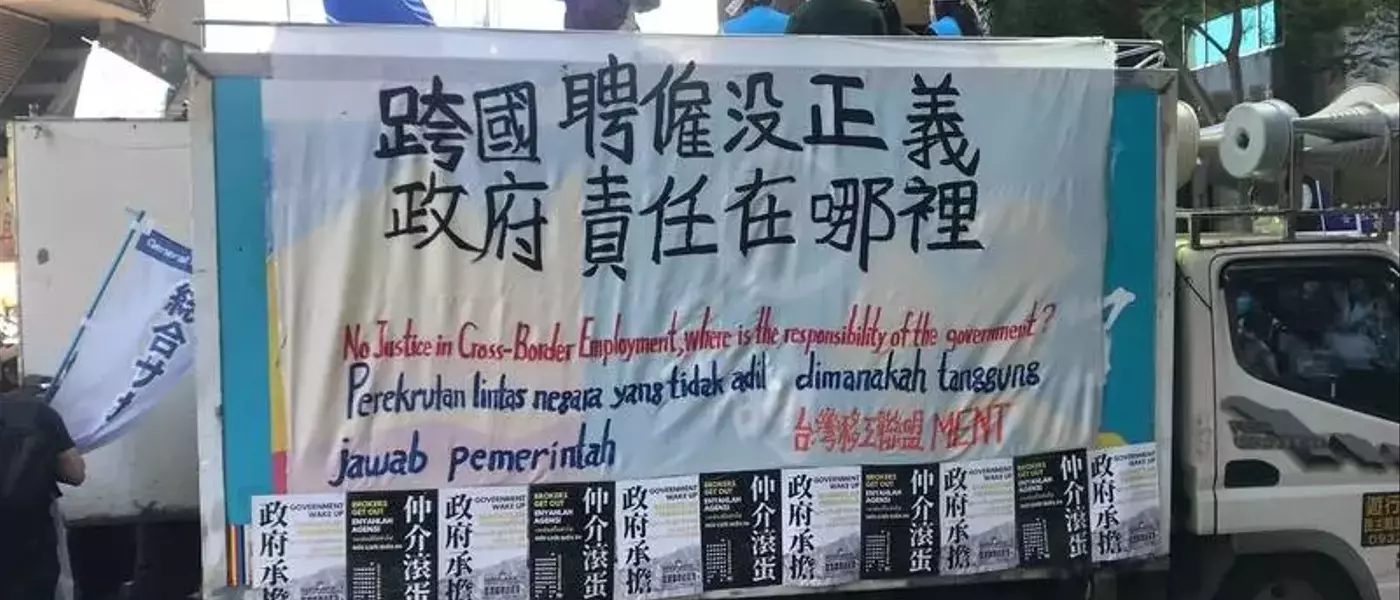 跨國聘僱没正義
政府責任在哪裡
No Justice in Cross-Border Employment, where is the responsibility of the government?
Perekrutan lintas negara yang tidak adil dimanakah tanggung
jawab pemerintah
台灣移工聯盟 MENT
General
統合サ
政府承擔
GOVERNMENT
WAKE UP
BROKERS
GET OUT
ENYAHLAH
AGENSI
仲介滾蛋
政府承擔
GOVERNMENT
WAKE UP
BROKERS
GET OUT
ENYAHLAH
AGENSI
仲介滾蛋
政府承擔
GOVERNMENT
WAKE UP
BROKERS
GET OUT
ENYAHLAH
AGENSI
仲介滾蛋
政府承擔
GOVERNMENT
WAKE UP
BROKERS
GET OUT
ENYAHLAH
AGENSI
仲介滾蛋
政府承擔
GOVERNMENT
WAKE UP
BROKERS
GET OUT
ENYAHLAH
AGENSI
仲介滾蛋
政府承擔
GOVERNMENT
WAKE UP